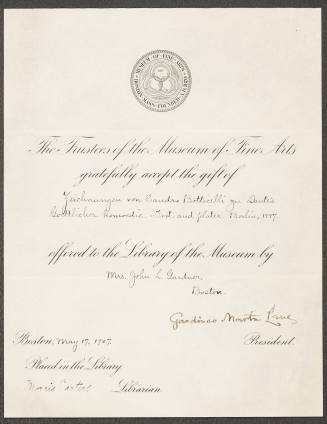 MUSEUM OF FINE ARTS
BOSTON MASS FOUNDED
The Trustees of the Museum of Fine Arts
gratefully accept the gift of
Zeichnungen von Sandro Botticelli zu Dante's
Goettlicher Komoedie. Text and plates. Berlin, 1887.
offered to the Library of the Museum by
Mrs. John L. Gardner
Boston.
Gardiner Martin Lane
President.
Boston, May 17, 1907.
Placed in the Library
Morris Carter Librarian.